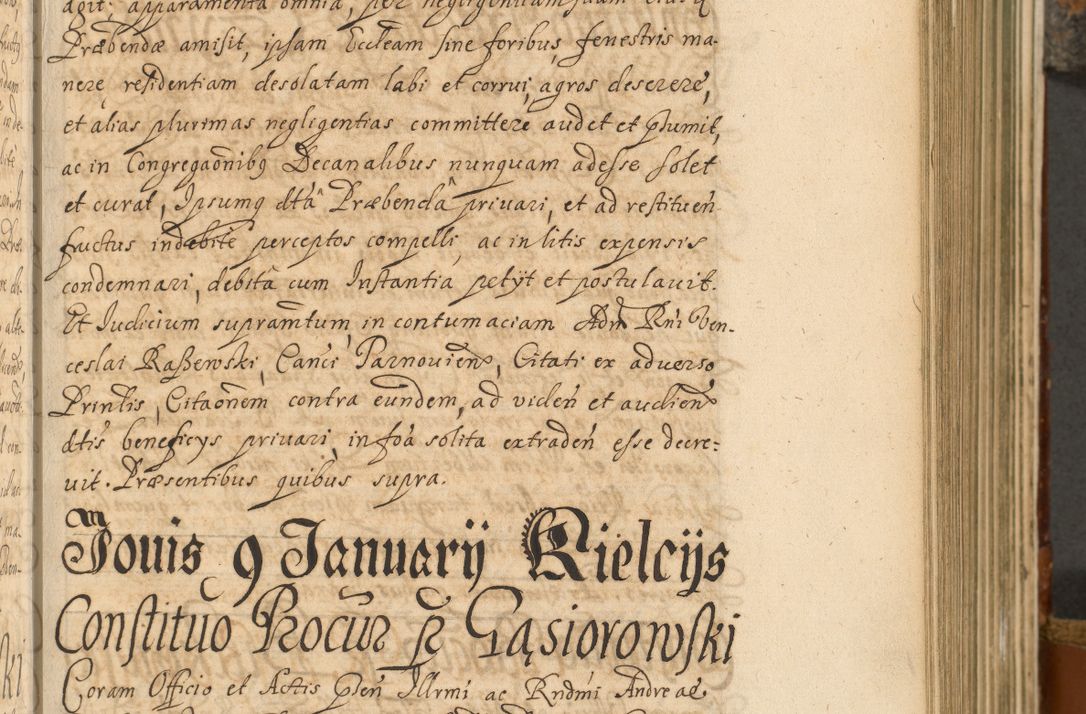 agit: apparamenta omnia, per negligentiam suam
Præbendæ amisit, ipsam Eccleam sine foribus, fenestris ma-
nere, residentiam desolatam labi et corrui, agros deserere,
et alias plurimas negligentias committere audet et pſumit,
ac in Congregaōnibꝫ Decanalibus nunquam adesse solet
et curat, Ipsumq dttâ Præbendâ privari, et ad restitueñ
fructus indebitè perceptos compelli, ac in litis expensis
condemnari, debitâ cum Instantiâ petÿt et postulavit.
Et Iudicium supramtum, in contumaciam Adm̃ Rñi Ven-
ceslai Raßewski, Canci Parnovien, Citati ex adverso
Prinlis, Citaōnem contra eundem, ad videñ et audien
dtis beneficÿs privari, in foâ solita extradeñ esse decre:
vit. Præsentibus quibus supra.
Jovis 9 Januarÿ Kielcÿs
Constituõ Procur̃ pr Gąsiorowſki
Coram Officio et Actis pſeñ Illrmi ac Rndmi Andreae